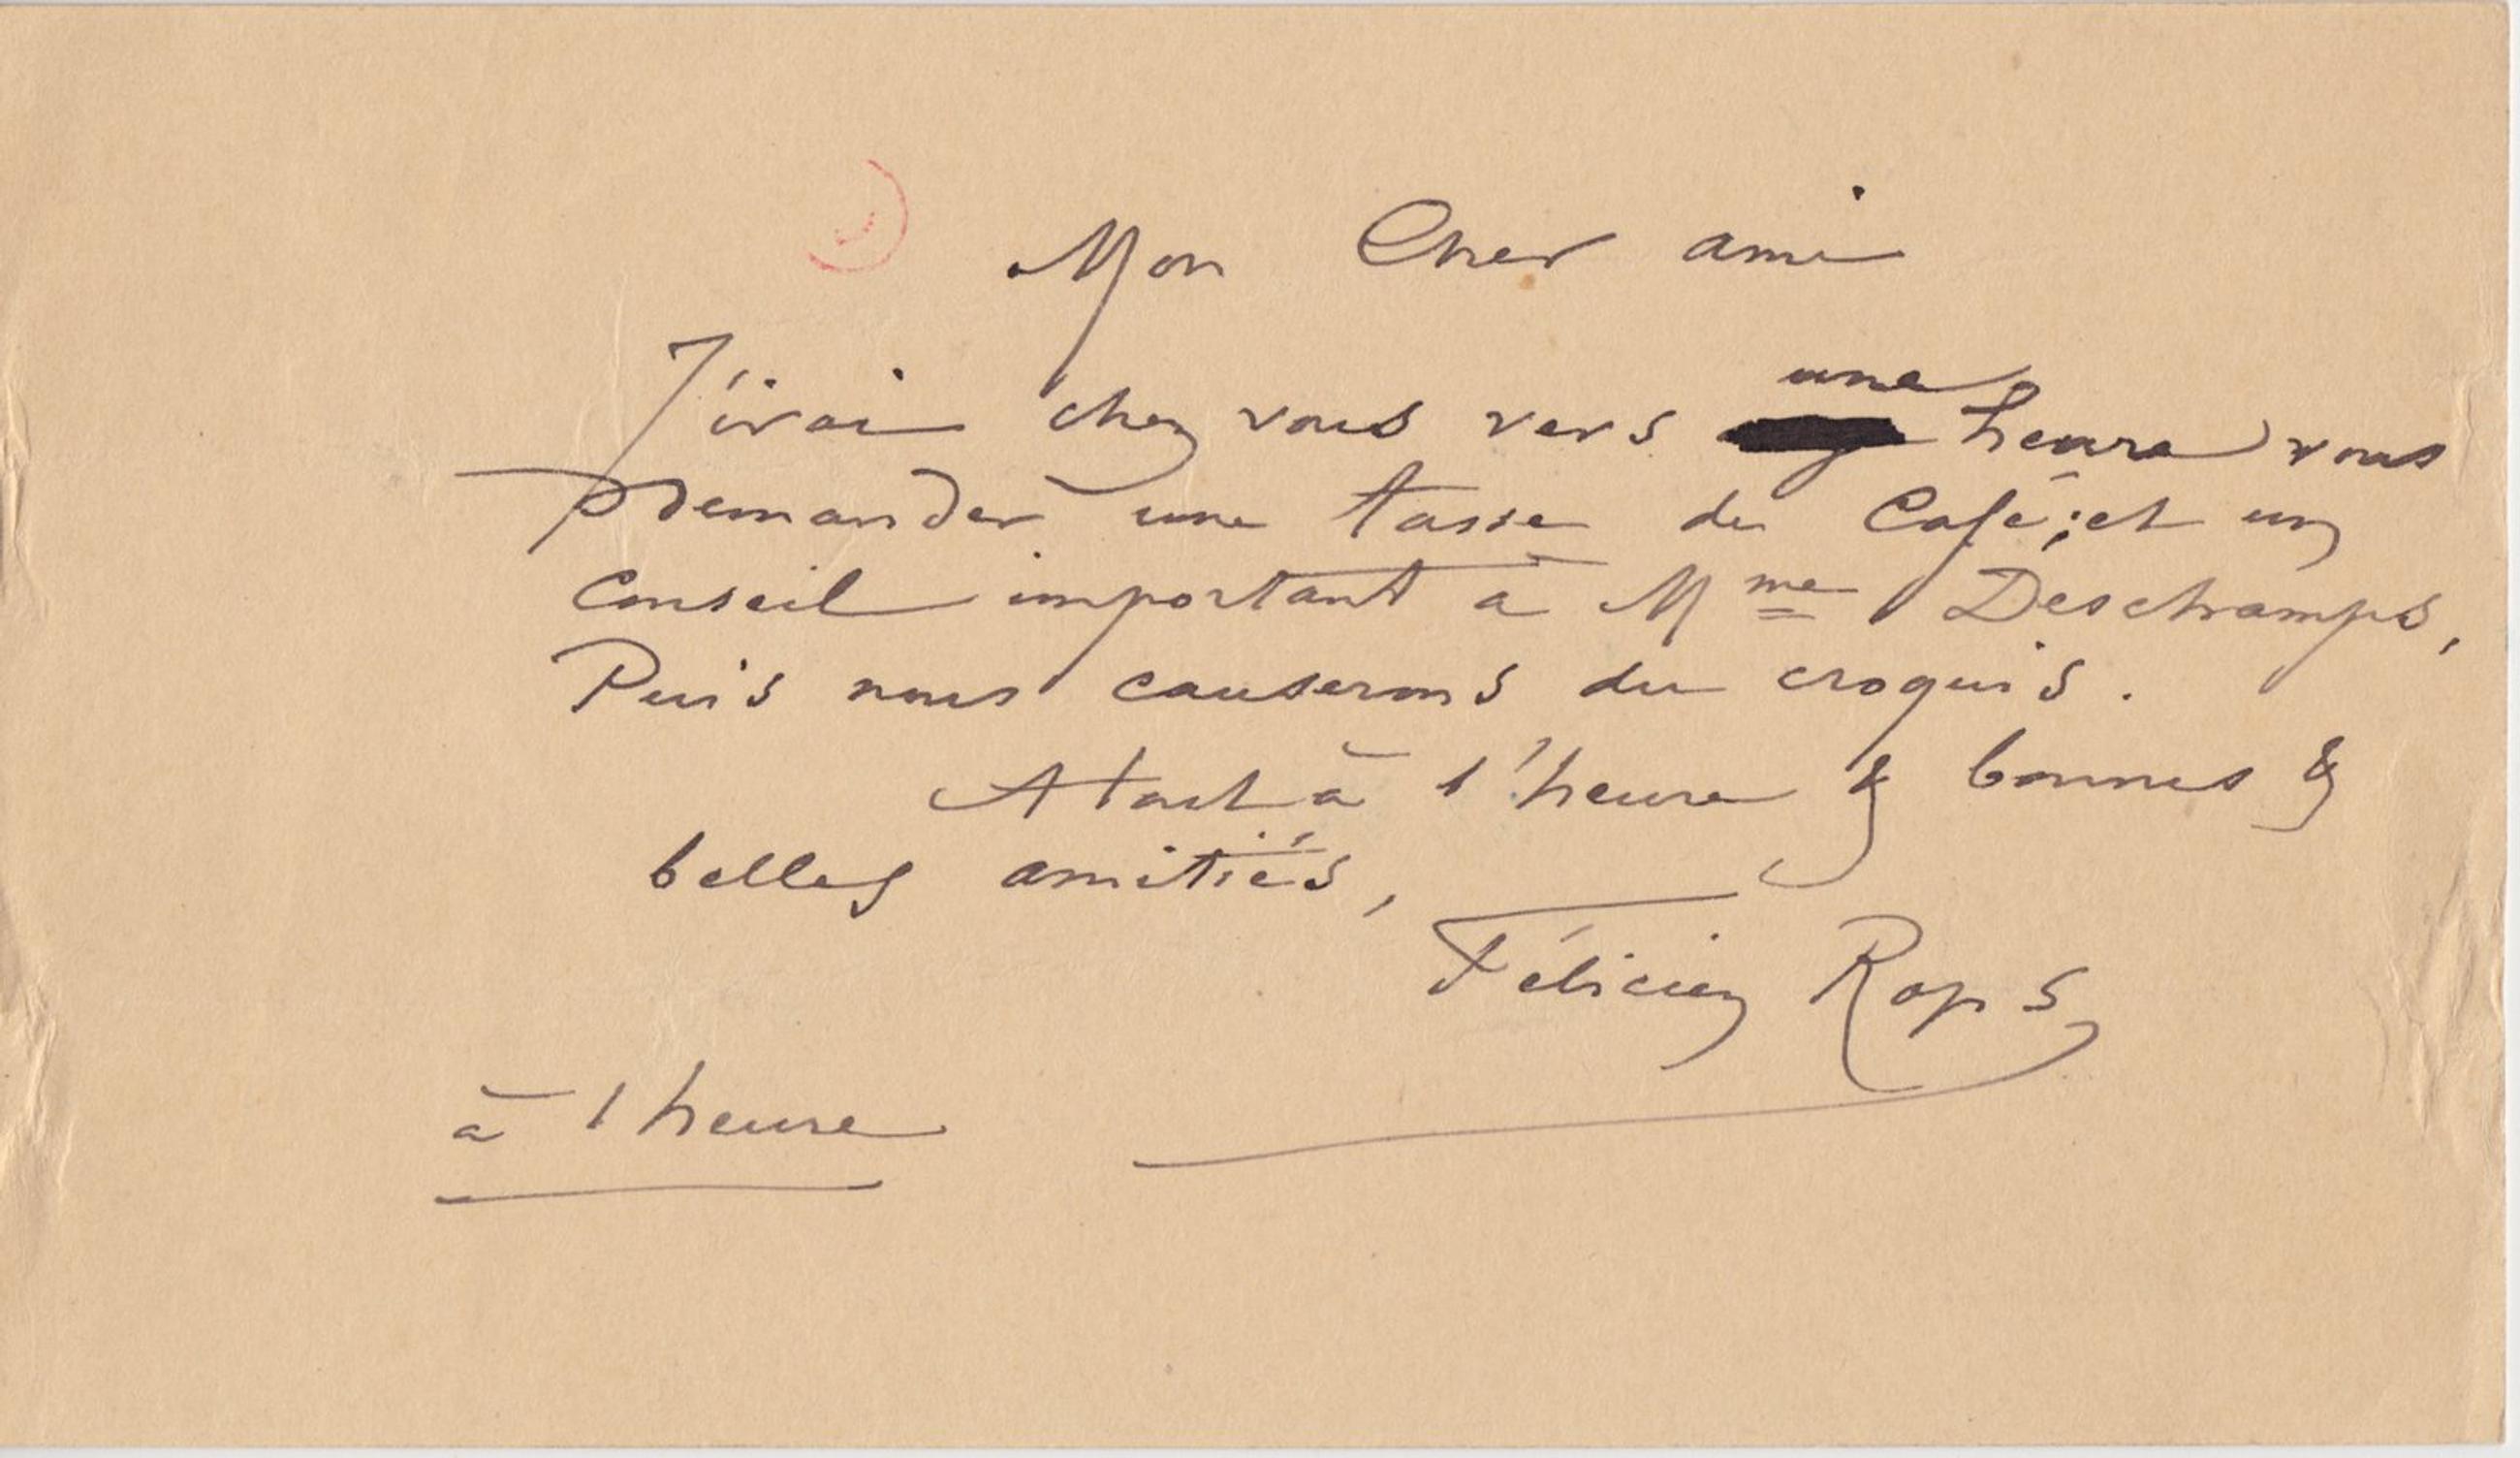 Mon Cher ami
J'irai chez vous vers une heure vous
demander une tasse de Café ; et un
Conseil important à Mme Deschamps,
Puis nous causerons du croquis.
A tout à l'heure & bonnes &
belles amitiés,
Félicien Rops
à 1 heure